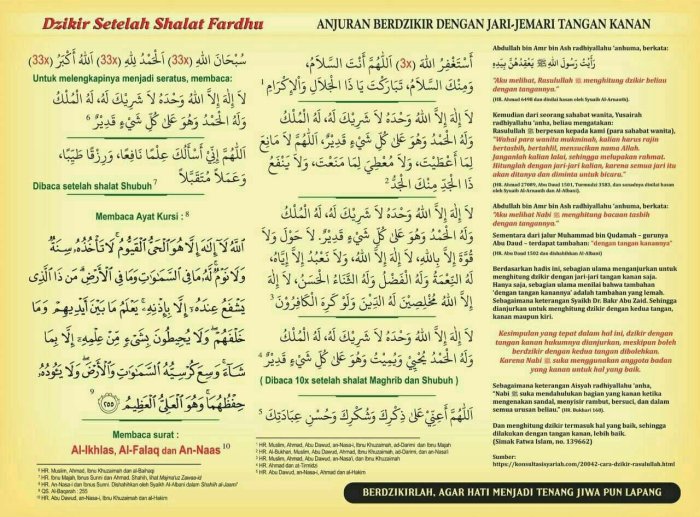 Dzikir Setelah Shalat Fardhu
ANJURAN BERDZIKIR DENGAN JARI-JEMARI TANGAN KANAN
أَسْتَغْفِرُ اللهَ (3x) اَللَّهُمَّ أَنْتَ السَّلَامُ،
وَمِنْكَ السَّلَامُ، تَبَارَكْتَ يَا ذَا الْجَلَالِ وَالْإِكْرَامِ 1
لَا إِلٰهَ إِلَّا اللهُ وَحْدَهُ لَا شَرِيكَ لَهُ، لَهُ الْمُلْكُ
وَلَهُ الْحَمْدُ وَهُوَ عَلَىٰ كُلِّ شَيْءٍ قَدِيْرٌ، اَللَّهُمَّ لَا مَانِعَ
لِمَا أَعْطَيْتَ، وَلَا مُعْطِيَ لِمَا مَنَعْتَ، وَلَا يَنْفَعُ
ذَا الْجَدِّ مِنْكَ الْجَدُّ 2
لَا إِلٰهَ إِلَّا اللهُ وَحْدَهُ لَا شَرِيكَ لَهُ، لَهُ الْمُلْكُ
وَلَهُ الْحَمْدُ وَهُوَ عَلَىٰ كُلِّ شَيْءٍ قَدِيْرٌ. لَا حَوْلَ وَلَا
قُوَّةَ إِلَّا بِاللهِ، لَا إِلٰهَ إِلَّا اللهُ، وَلَا نَعْبُدُ إِلَّا إِيَّاهُ،
لَهُ النِّعْمَةُ وَلَهُ الْفَضْلُ وَلَهُ الثَّنَاءُ الْحَسَنُ، لَا إِلٰهَ
إِلَّا اللهُ مُخْلِصِيْنَ لَهُ الدِّيْنَ وَلَوْ كَرِهَ الْكَافِرُوْنَ 3
لَا إِلٰهَ إِلَّا اللهُ وَحْدَهُ لَا شَرِيكَ لَهُ، لَهُ الْمُلْكُ
وَلَهُ الْحَمْدُ يُحْيِيْ وَيُمِيْتُ وَهُوَ عَلَىٰ كُلِّ شَيْءٍ قَدِيْرٌ 4
( Dibaca 10x setelah shalat Maghrib dan Shubuh )
اَللَّهُمَّ أَعِنِّيْ عَلَىٰ ذِكْرِكَ وَشُكْرِكَ وَحُسْنِ عِبَادَتِكَ 5
1 HR. Muslim, Ahmad, Abu Dawud, an-Nasa-i, Ibnu Khuzaimah, ad-Darimi dan Ibnu Majah
2 HR. Al-Bukhari, Muslim, Abu Dawud, an-Nasa-i, Ahmad, Ibnu Khuzaimah, ad-Darimi
3 HR. Muslim, Ahmad, Abu Dawud, an-Nasa-i, dan Ibnu Khuzaimah
4 HR. Ahmad dan at-Tirmidzi
5 HR. Ahmad, Abu Dawud, an-Nasa-i, Ibnu Khuzaimah dan al-Hakim
سُبْحَانَ اللهِ (33x) اَلْحَمْدُ لِلّٰهِ (33x) اَللهُ أَكْبَرُ (33x)
Untuk melengkapinya menjadi seratus, membaca:
لَا إِلٰهَ إِلَّا اللهُ وَحْدَهُ لَا شَرِيكَ لَهُ، لَهُ الْمُلْكُ
وَلَهُ الْحَمْدُ وَهُوَ عَلَىٰ كُلِّ شَيْءٍ قَدِيْرٌ 6
اَللَّهُمَّ إِنِّيْ أَسْأَلُكَ عِلْمًا نَافِعًا، وَرِزْقًا طَيِّبًا،
وَعَمَلًا مُتَقَبَّلًا
Dibaca setelah shalat Shubuh 7
Membaca Ayat Kursi : 8
اللَّهُ لَا إِلَٰهَ إِلَّا هُوَ الْحَيُّ الْقَيُّومُ ۚ لَا تَأْخُذُهُ سِنَةٌ
وَلَا نَوْمٌ ۚ لَهُ مَا فِي السَّمَاوَاتِ وَمَا فِي الْأَرْضِ ۗ مَنْ ذَا الَّذِي
يَشْفَعُ عِنْدَهُ إِلَّا بِإِذْنِهِ ۚ يَعْلَمُ مَا بَيْنَ أَيْدِيهِمْ وَمَا
خَلْفَهُمْ ۖ وَلَا يُحِيطُونَ بِشَيْءٍ مِنْ عِلْمِهِ إِلَّا بِمَا
شَاءَ ۚ وَسِعَ كُرْسِيُّهُ السَّمَاوَاتِ وَالْأَرْضَ ۖ وَلَا يَئُودُهُ
حِفْظُهُمَا ۚ وَهُوَ الْعَلِيُّ الْعَظِيمُ ﴿٢٥٥﴾
Membaca surat :
Al-Ikhlas, Al-Falaq dan An-Naas 10
6 HR. Muslim, Ahmad, Ibnu Khuzaimah dan al-Baihaqi
7 HR. Ibnu Majah, Ibnus Sunni dan Ahmad. Shahih, lihat Majma'uz Zawaa-id
8 HR. An-Nasa-i dan Ibnus Sunni. Dishahihkan oleh Syaikh Al-Albani dalam Shahih al-Jaami'
9 QS. Al-Baqarah : 255
10 HR. Abu Dawud, an-Nasa-i, Ibnu Khuzaimah dan al-Hakim
Abdullah bin Amr bin Ash radhiyallahu 'anhuma, berkata:
رَأَيْتُ رَسُولَ اللهِ ﷺ يَعْقِدُهُنَّ بِيَدِهِ
"Aku melihat, Rasulullah ﷺ menghitung dzikir beliau
dengan tangannya."
(HR. Ahmad 6498 dan dinilai hasan oleh Syuaib Al-Arnauth).
Kemudian dari seorang sahabat wanita, Yusairah
radhiyallahu 'anha, beliau mengatakan:
Rasulullah ﷺ berpesan kepada kami (para sahabat wanita),
"Wahai para wanita mukminah, kalian harus rajin
bertasbih, bertahlil, mensucikan nama Allah.
Janganlah kalian lalai, sehingga melupakan rahmat.
Hitunglah dengan jari-jari kalian, karena semua jari itu
akan ditanya dan diminta untuk bicara."
(HR. Ahmad 27089, Abu Daud 1501, Turmudzi 3583, dan sanadnya dinilai hasan
oleh Syuaib Al-Arnauth dan Al-Albani).
Abdullah bin Amr bin Ash radhiyallahu 'anhuma, berkata:
"Aku melihat Nabi ﷺ menghitung bacaan tasbih
dengan tangannya."
Sementara dari jalur Muhammad bin Qudamah – gurunya
Abu Daud – terdapat tambahan: "dengan tangan kanannya"
(HR. Abu Daud 1502 dan dishahihkan Al-Albani)
Berdasarkan hadis ini, sebagian ulama menganjurkan untuk
menghitung dzikir dengan jari-jari tangan kanan saja.
Hanya saja, sebagian ulama menilai bahwa tambahan
'dengan tangan kanannya' adalah tambahan yang lemah.
Sebagaimana keterangan Syaikh Dr. Bakr Abu Zaid. Sehingga
dianjurkan untuk menghitung dzikir dengan kedua tangan,
kanan maupun kiri.
Kesimpulan yang tepat dalam hal ini, dzikir dengan
tangan kanan hukumnya dianjurkan, meskipun boleh
berdzikir dengan kedua tangan dibolehkan.
Karena Nabi ﷺ suka menggunakan anggota badan
yang kanan untuk hal yang baik.
Sebagaimana keterangan Aisyah radhiyallahu 'anha,
"Nabi ﷺ suka mendahulukan bagian yang kanan ketika
mengenakan sandal, menyisir rambut, bersuci, dan dalam
semua urusan beliau." (HR. Bukhari 168).
Dan menghitung dzikir termasuk hal yang baik, sehingga
dilakukan dengan tangan kanan, lebih baik.
(Simak Fatwa Islam, no. 139662)
Sumber:
https://konsultasisyariah.com/20042-cara-dzikir-rasulullah.html
BERDZIKIRLAH, AGAR HATI MENJADI TENANG JIWA PUN LAPANG